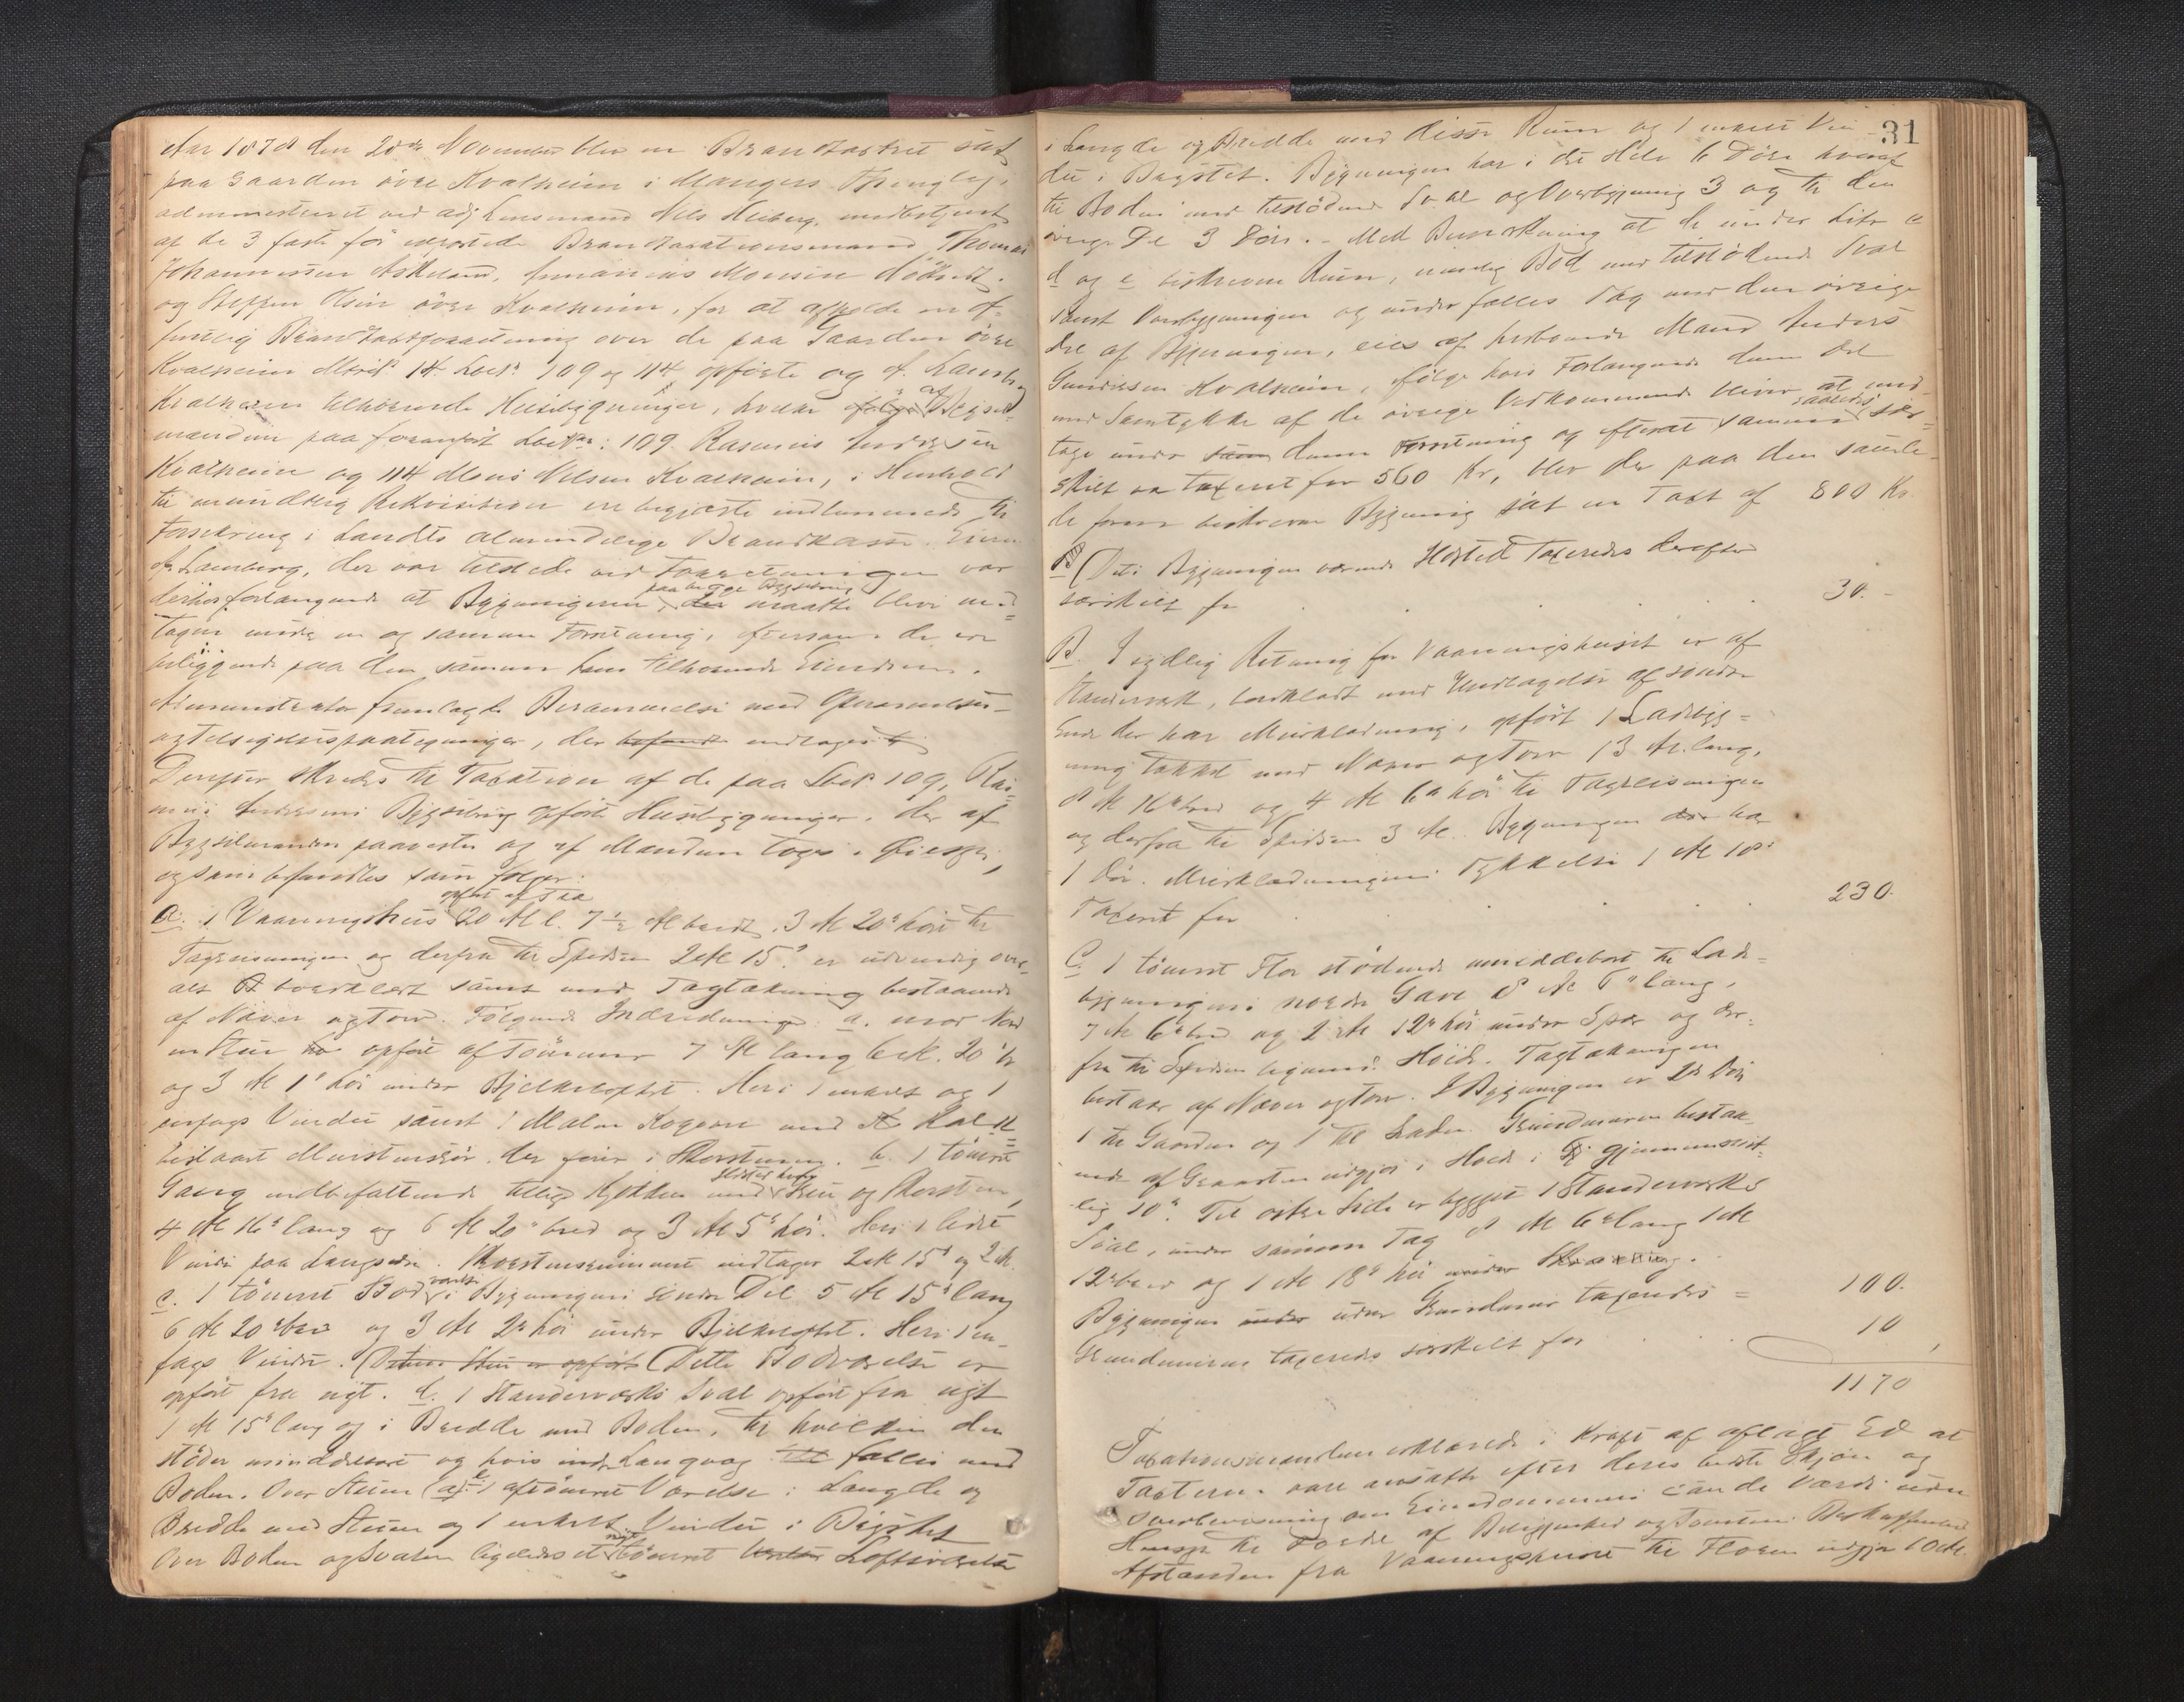 Aar 1878 den 28de November blev en Brandtaxtret sat
paa Gaarden övre Kvalheim i Mangers Thinglag,
administreret ved adj. Lensmand Nils Heiberg, medbetjent
af de 3 faste för edsvorede Brandtaxtationsmænd Thomas
Johannessen Askeland, Monsen
og Steffen Olsen övre Kvalheim, for at afholde en of-
fentlig Brandtaxtforretning over de paa Gaarden övre
Kvalheim Matr. No 14 Löbe No 109 og 114 opförte og
Kvalheim tilhörende Huusbygninger, hvilke af Bygsel-
mændene paa foranfört Löbe No: 109 Rasmus Anderssen
Kvalheim og 114 Mons Nilsen Kvalheim, i Henhold
til mundtlig Rekvisition ere begjærte indlemmede til
Forsikring i Landets almindelige Brandkasse. Eieren
der var tilstede ved Forretningen var
derhos forlangende at Bygningerne paa begge Bygselbrug der maatte blive med
tagne under en og samme Forretning, eftersom de ere
beliggende paa den samme ham tilhörende Eiendom.
Administrator fremlagde Berammelse med
paategninger, der befandt indtages
Derefter skredes til Taxation af de paa Löbe No 109, Ras-
mus Anderssens Bygselbrug opförte Huusbygninger, der af
Bygselmanden paavistes og af Mændene toges i Öiesyn,
og som befandtes som fölger:
a. 1 Vaaningshus opfört af Træ 20 Al l. 7½ Al bredt, 3 Al 20" höit til
Tagreisningen og derfra til Spidsen 2 Al 15", er udvendig over-
alt bordklædt samt med Tagtækning bestaaende
af Næver og Torv. Fölgende Indredninger: a. mod Nord
en Stue opfört af Tömmer 7 Al lang 6 Al. 20" br
og 3 Al 1" höi under Bjelkeloftet. Heri 1 enkelt og 1
enfags Vindue samt 1 Malm Kogeovn med Kal-k
beslaaet Muurstensrör der förer i Skorstenen. b. 1 tömret
Gang indbefattende tillige Kjökken med og Skorsten,
4 Al 16" lang og 6 Al 20" bred og 3 Al 5" höi. Heri 1 lidet
Vindu paa Langsiden. Skorstensrummet indtager 2 Al 15" og 2 Al.
c. 1 tömret Bod i Bygningens söndre Del 5 Al 15" lang
6 Al 20" bred og 3 Al 2" höi under Bjelkeloftet. Heri 1 en-
fags Vindue. (Denne Stue er opfört (Dette Bodværelse er
opfört fra nyt. d. 1 Standerværks Sval opfört fra nyt
1 Al 15" lang og i Bredde med Boden, til hvilken den
stöder umiddelbart og hvis Langvæg fælles med
Boden. Over Stuen (a) e. 1 aftömret Værelse i Længde og
Bredde med Stuen og 1 enkelt Vindue i Bagstet
Over Boden og Svalen ligeledes et nyt tömret Loftsværelse
31
i Længde og Bredde med disse Rum og 1 enkelt Vin-
due i Bagstet. Bygningen har i det Hele 6 Döre hvoraf
til Boden med tilstödende Sval og Overbygning 3 og til den
övrige Del 3 Döre. – Med Bemærkning at de under Litr c
d og e beskrevne Rum, nemlig Bod med tilstödende Sval
samt Overbygningen og under fælles Tag med den övrige
Del af Bygningen, eies af hosboende Mand Anders
Kvalheim, fölge hans Forlangende denne Del
med Samtykke af de övrige Vedkommende bliver at med-
tage under denne Forretning og efterat samme saaledes sær-
skilt var taxeret for 560 Kr, blev der paa den saale-
de foran beskrevne Bygning sat en Taxt af 800 Kr.
(Det i Bygningen værende Ildsted taxeredes derefter
særskilt for . . . . 30.-
B. I sydlig Retning for Vaaningshuset er af
Standerværk, bordklædt med Undtagelse af söndre
Ende der har Muurklædning, opfört 1 Ladebyg-
ning tækket med Næver og Torv 13 Al. lang,
8 Al 16" bred og 4 Al 6" höi til Tagreisningen
og derfra til Spidsen 3 Al. Bygningen har
1 Dör. Muurklædningens Tykkelse 1 Al 18"
Taxeret for . . . . 230.
C. 1 tömret Flor stödende umiddelbart til Lade-
bygningens nordre Gavl 8 Al 6" lang,
7 Al 6" bred og 2 Al 12" höi under Spær og der-
fra til Spidsen ligesaa Höide. Tagtækningen
bestaar af Næver og Torv. I Bygningen er 2 Döre
1 til Gaarden og 1 til Laden. Grundmuren bestaa-
ende af Graasten udgjör i Höide i gjennemsnit-
lig 10". Til östre Side er bygget 1 Standerværks
Sval, under samme Tag 8 Al 6" lang 1 Al
12" bred og 1 Al 18" höi under
Bygningen under uden Grundmur taxeredes = 100.
Grundmuren taxeredes særskilt for . . . 10
1170
Taxationsmændene erklærede i Kraft af aflagt Ed at
Taxterne vare ansatte efter deres bedste Skjön og
Overbevisning om Eiendommens sande Værdi uden
Hensyn til Fordel af Beliggenhed og Tomtens Beskaffenhed
Afstanden fra Vaaningshuset til Floren udgjör 10 Al.